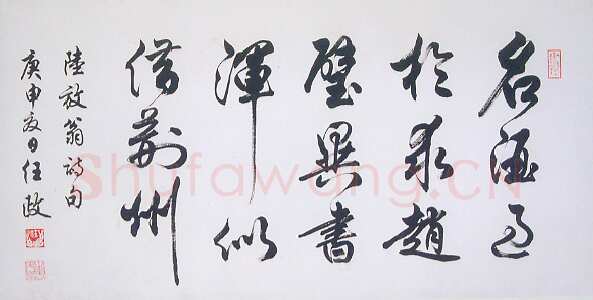 名酒過
於求趙
璧異書
渾似
借荊州
陸放翁詩句
庚申夏日任政
Shufawang.CN